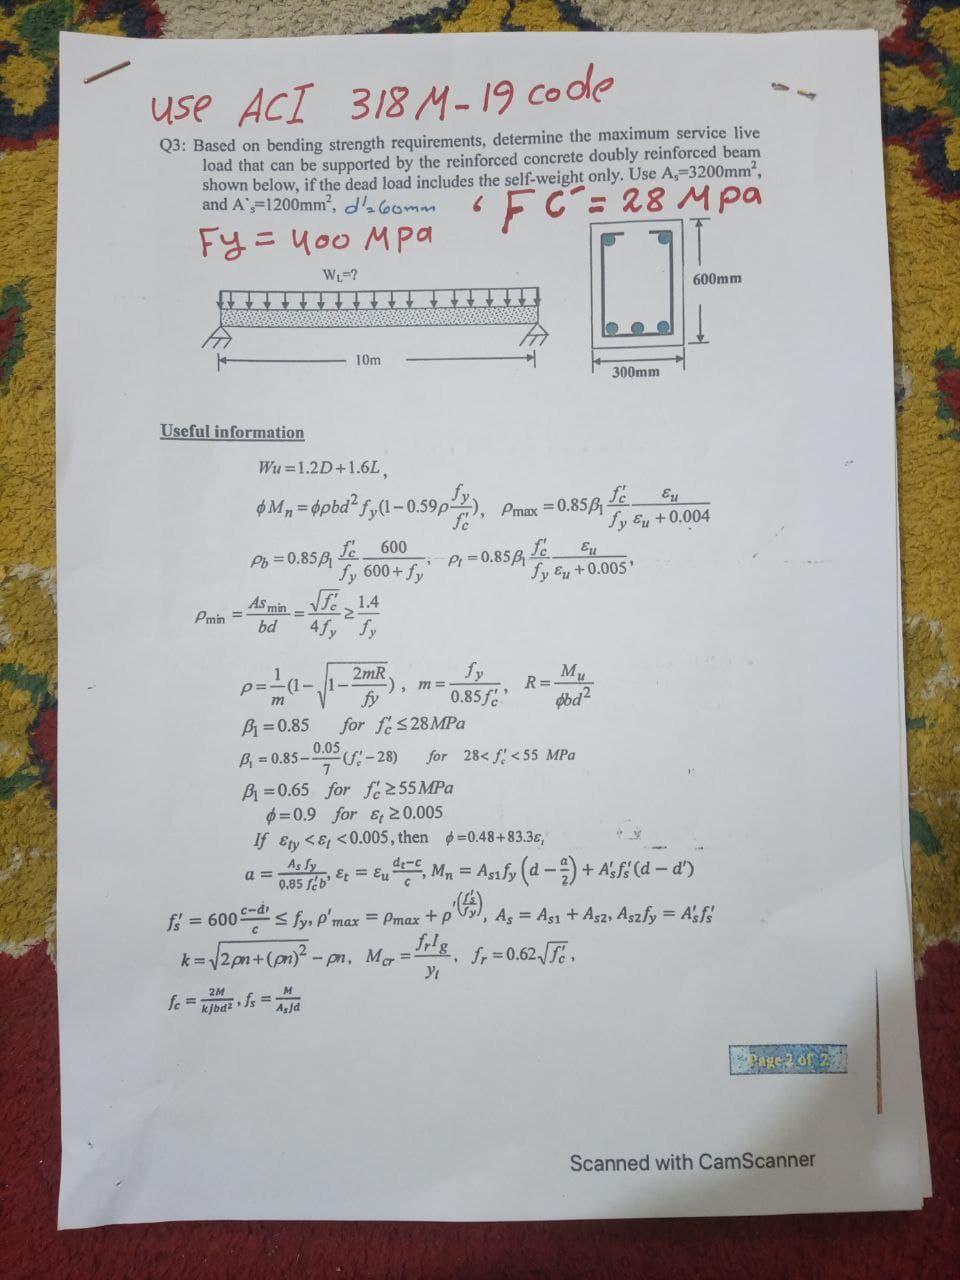 use ACI 318M-19 code
Q3: Based on bending strength requirements, determine the maximum service live
load that can be supported by the reinforced concrete doubly reinforced beam
shown below, if the dead load includes the self-weight only. Use Aₛ=3200mm²,
and A`ₛ=1200mm², d'=60mm ، FC' = 28 MPa
Fy = 400 MPa
W_L=?
600mm
10m
300mm
Useful information
Wu=1.2D+1.6L,
ϕMₙ=ϕρbd²f_y(1-0.59ρ f_y/f'c), ρmax=0.85β₁ f'c/f_y εᵤ/(εᵤ+0.004)
ρ_b=0.85β₁ f'c/f_y 600/(600+f_y); ρ_t=0.85β₁ f'c/f_y εᵤ/(εᵤ+0.005),
ρmin=As min/bd=√f'c/4f_y≥1.4/f_y
ρ=1/m(1-√(1-2mR/fy)), m=f_y/0.85f'c, R=Mᵤ/ϕbd²
β₁=0.85 for f'c≤28MPa
β₁=0.85-0.05/7(f'c-28) for 28<f'c<55 MPa
β₁=0.65 for f'c≥55MPa
ϕ=0.9 for ε_t≥0.005
If ε_ty<ε_t<0.005, then ϕ=0.48+83.3ε_t
a = As fy/0.85 f'c b, ε_t = εᵤ (d_t-c)/c, Mₙ = A_s1 f_y (d - a/2) + A'ₛf'ₛ(d - d')
f'ₛ = 600 (c-d')/c ≤ f_y, ρ'max = ρmax + ρ'(f'ₛ/f_y), Aₛ = A_s1 + A_s2, A_s2 f_y = A'ₛf'ₛ
k=√(2ρn+(ρn)²)-ρn, Mcr=f_r I_g/y_t, f_r=0.62√f'c,
f_c = 2M/kjbd², fₛ = M/Aₛjd
Page 2 of 2
Scanned with CamScanner